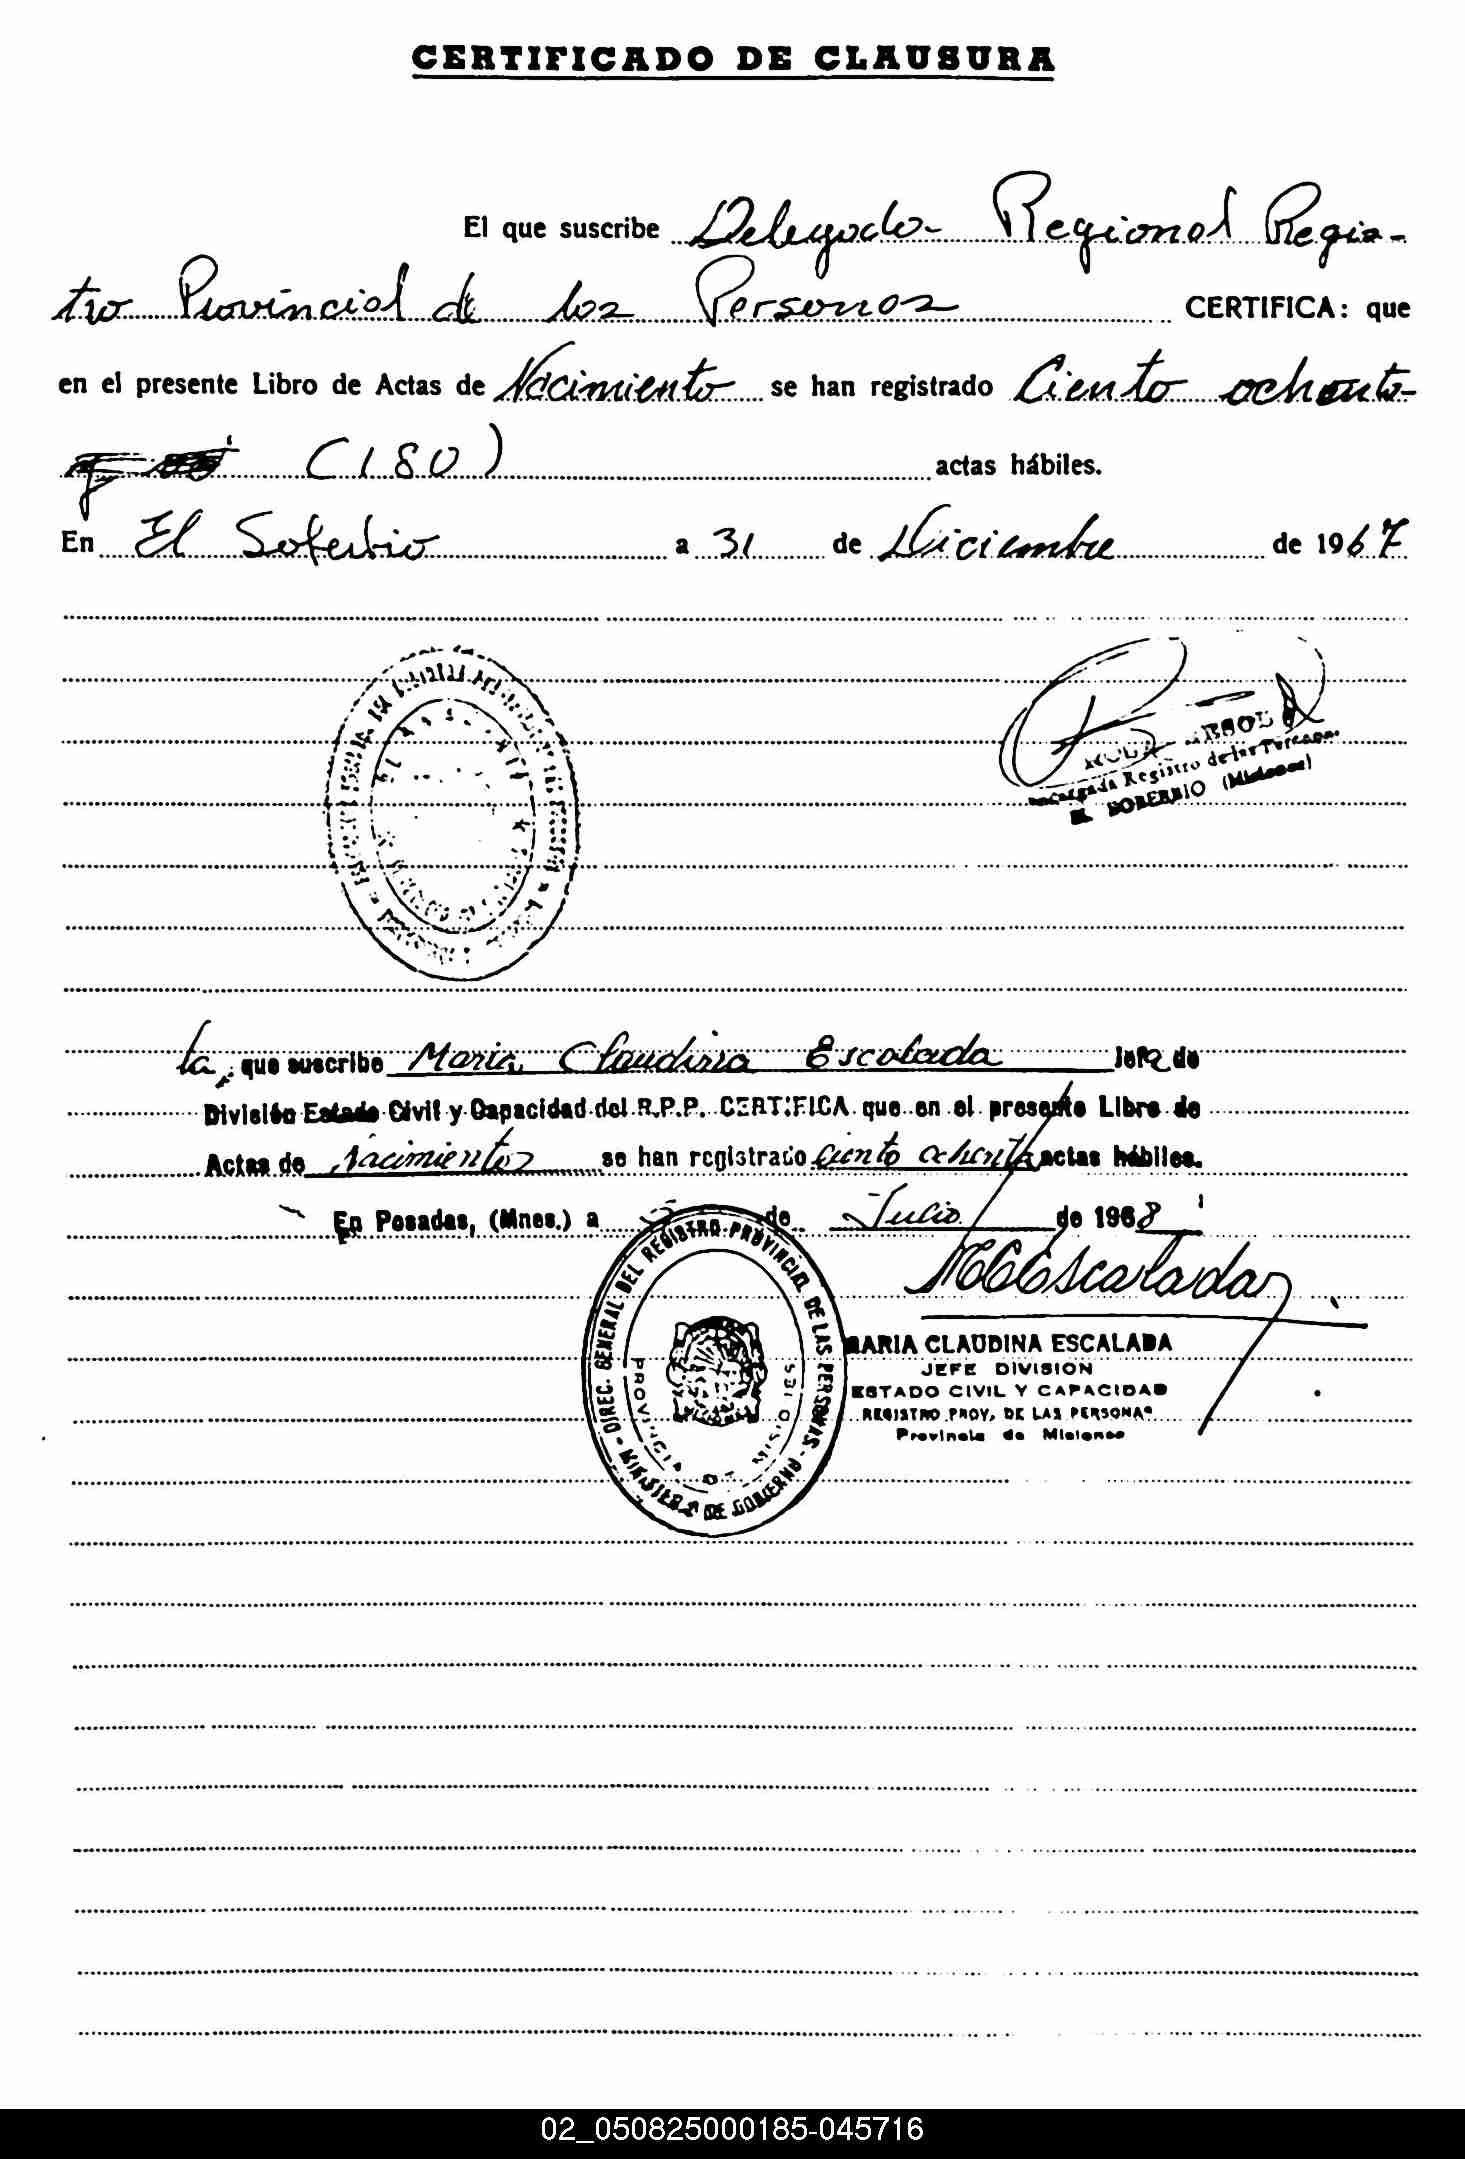 CERTIFICADO DE CLAUSURA
El que suscribe Delegado Regional Regis-
tro Provincial de las Personas CERTIFICA: que
en el presente Libro de Actas de Nacimiento se han registrado Ciento ochenta
(180) actas hábiles.
En El Soberbio a 31 de Diciembre de 1967
Encargada Registro de las Personas
EL SOBERBIO (Misiones)
La que suscribe Maria Claudina Escalada Jefa de
División Estado Civil y Capacidad del R.P.P. CERTIFICA que en el presente Libro de
Actas de Nacimientos se han registrado ciento ochenta actas hábiles.
En Posadas, (Mnes.) a de Julio de 1968
MCEscalada
DIREC. GENERAL DEL REGISTRO PROVINCIAL DE LAS PERSONAS - MINISTERIO DE GOBIERNO -
PROVINCIA DE MISIONES
MARIA CLAUDINA ESCALADA
JEFE DIVISION
ESTADO CIVIL Y CAPACIDAD
REGISTRO PROV. DE LAS PERSONAS
Provincia de Misiones
02_050825000185-045716